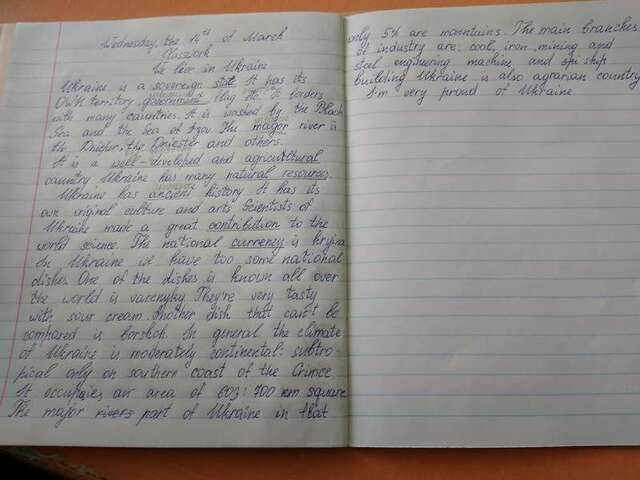 Wednesday, the 14th of March
Classwork
We live in Ukraine
Ukraine is a sovereign state. It has its
own territory, government, flag etc. It borders
with many countries. It is washed by the Black
Sea and the Sea of Azov. The magor river is
the Dnieper, the Dniester and others.
It is a well-developed and agricultural
country. Ukraine has many natural resources.
Ukraine has ancient history. It has its
own original culture and arts. Scientists of
Ukraine made a great contribution to the
world science. The national currency is hryvna
In Ukraine we have too some national
dishes. One of the dishes is known all over
the world is varenyky. They're very tasty
with sour cream. Another dish that can't be
compared is borshch. In general the climate
of Ukraine is moderately continental: subtro-
pical only on southern coast of the Crimea
It occupies an area of 603: 700 km square
The major rivers part of Ukraine in that
only 5% are mountains. The main branches
of industry are: coal, iron, mining and
steel engineering machine, and ship
building. Ukraine is also agrarian country
I'm very proud of Ukraine